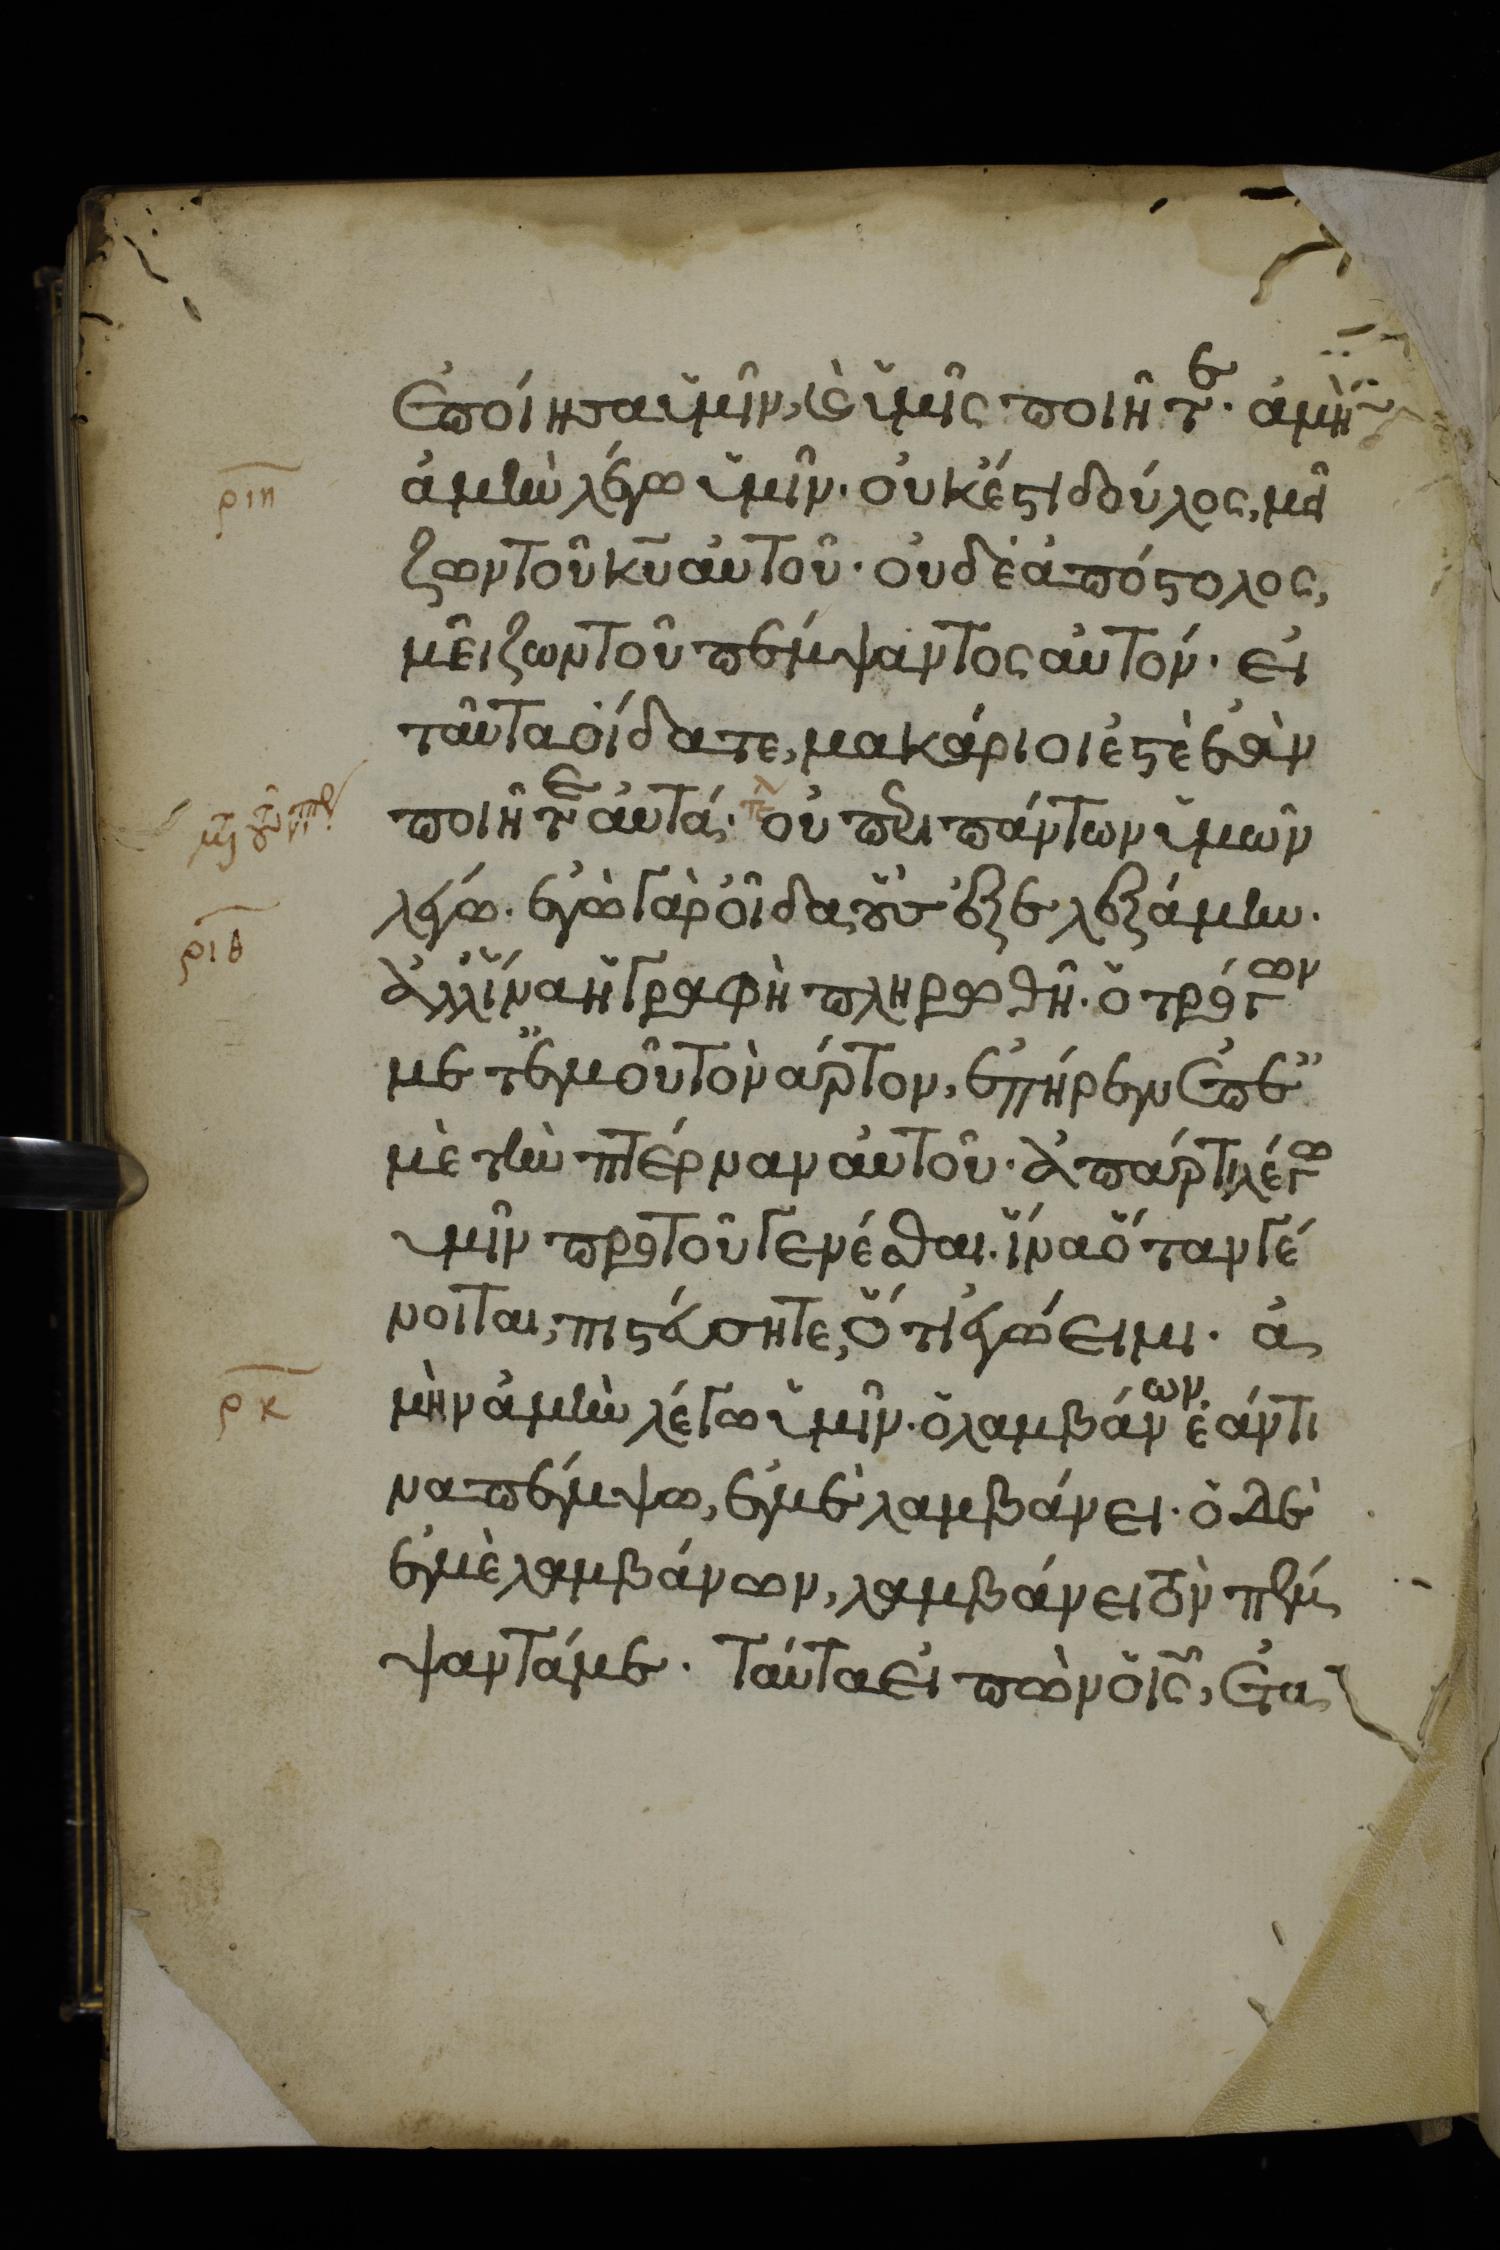 ἐποίησα ὑμῖν, κ(αὶ) ὑμῖς ποιῆτε. ἀμὴν
ριη ἀμὴν λέγω ὑμῖν. οὐκ ἔστι δοῦλος, μεῖ
ζων τοῦ κ̅υ̅ ἀυτοῦ. οὐδὲ ἀπόστολος,
μεῖζων τοῦ πέμψαντος ἀυτόν. εἰ
ταῦτα οἴδατε, μακάριοι ἐστὲ ἐὰν
ποιῆτε ἀυτά. οὐ περι πάντων ὑμῶν
ριθ λέγω. ἐγὼ γὰρ οἶδα οὓσ ἐξελεξάμην.
ἀλλ ἵνα ἡ γραφὴ πληρωθῆ. ὁ τρώγων
μετ ἐμοῦ τὸν ἄρτον, ἐπῆρεν ἐπ ἐ
μὲ τὴν πτέρναν ἀυτοῦ. ἀπάρτι λέγω
ὑμῖν πρὸ τοῦ γενέσθαι. ἵνα ὅταν γέ
νοιται, πιστέυσητε, ὅτι ἐγώ ειμι. ἀ
ρκ μὴν ἀμὴν λέγω ὑμῖν. ὁ λαμβάνων ἐάν τι
να πέμψω, ἐμὲ λαμβάνει. ὁ δὲ
ἐμὲ λαμβάνων, λαμβάνει τὸν πέμ
ψαντά με. ταύτα εἰπὼν ὁ ἰ̅ς̅, ἐτα